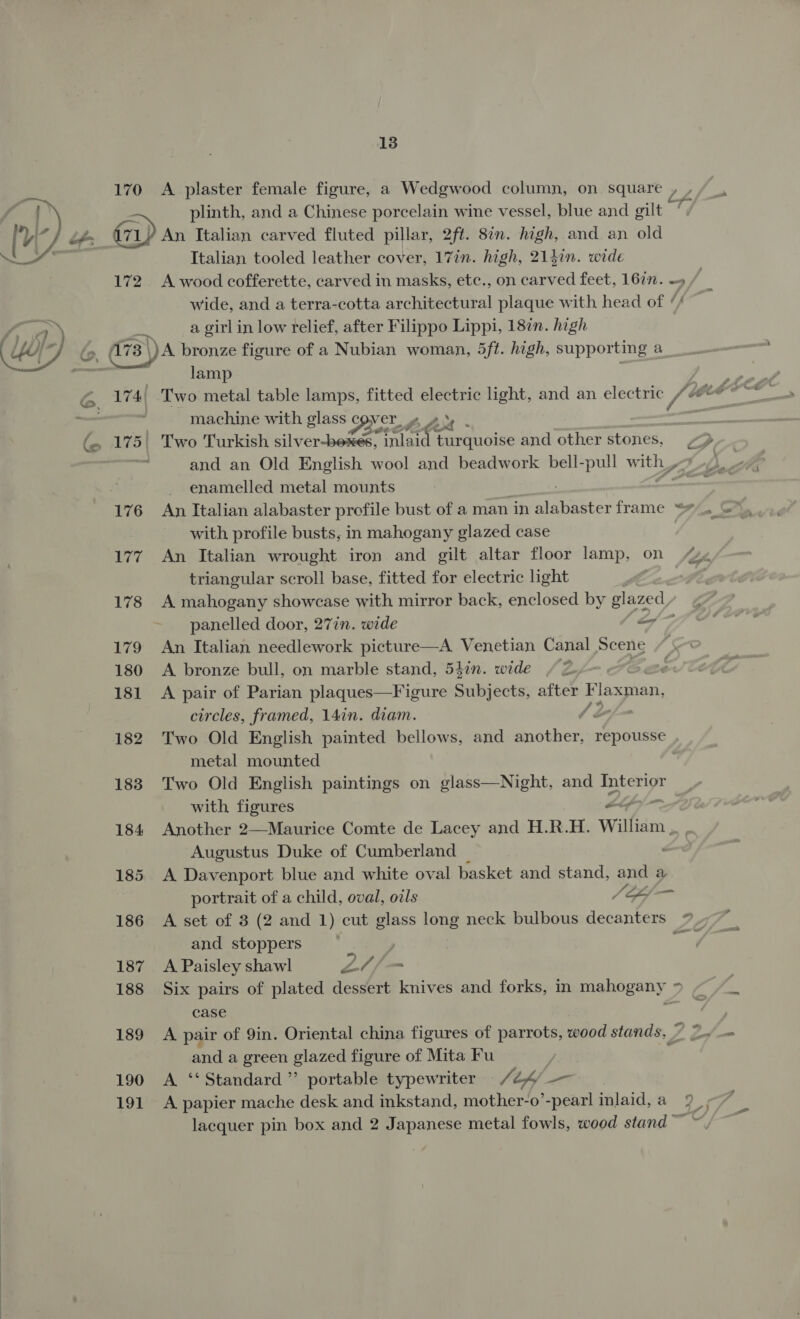 13
170 A plaster female figure, a Wedgwood column, on square
plinth, and a Chinese porcelain wine vessel, blue and gilt
171 An Italian carved fluted pillar, 2ft. 8in. high, and an old
Italian tooled leather cover, 17in. high, 21½in. wide
172 A wood cofferette, carved in masks, etc., on carved feet, 16in.
wide, and a terra-cotta architectural plaque with head of
a girl in low relief, after Filippo Lippi, 18in. high
173 A bronze figure of a Nubian woman, 5ft. high, supporting a
lamp
174 Two metal table lamps, fitted electric light, and an electric
machine with glass cover
175 Two Turkish silver-boxes, inlaid turquoise and other stones,
and an Old English wool and beadwork bell-pull with
enamelled metal mounts
176 An Italian alabaster profile bust of a man in alabaster frame
with profile busts, in mahogany glazed case
177 An Italian wrought iron and gilt altar floor lamp, on
triangular scroll base, fitted for electric light
178 A mahogany showcase with mirror back, enclosed by glazed
panelled door, 27in. wide
179 An Italian needlework picture—A Venetian Canal Scene
180 A bronze bull, on marble stand, 5½in. wide
181 A pair of Parian plaques—Figure Subjects, after Flaxman,
circles, framed, 14in. diam.
182 Two Old English painted bellows, and another, repousse
metal mounted
183 Two Old English paintings on glass—Night, and Interior
with figures
184 Another 2—Maurice Comte de Lacey and H.R.H. William
Augustus Duke of Cumberland
185 A Davenport blue and white oval basket and stand, and a
portrait of a child, oval, oils
186 A set of 3 (2 and 1) cut glass long neck bulbous decanters
and stoppers
187 A Paisley shawl
188 Six pairs of plated dessert knives and forks, in mahogany
case
189 A pair of 9in. Oriental china figures of parrots, wood stands,
and a green glazed figure of Mita Fu
190 A “Standard” portable typewriter
191 A papier mache desk and inkstand, mother-o’-pearl inlaid, a
lacquer pin box and 2 Japanese metal fowls, wood stand